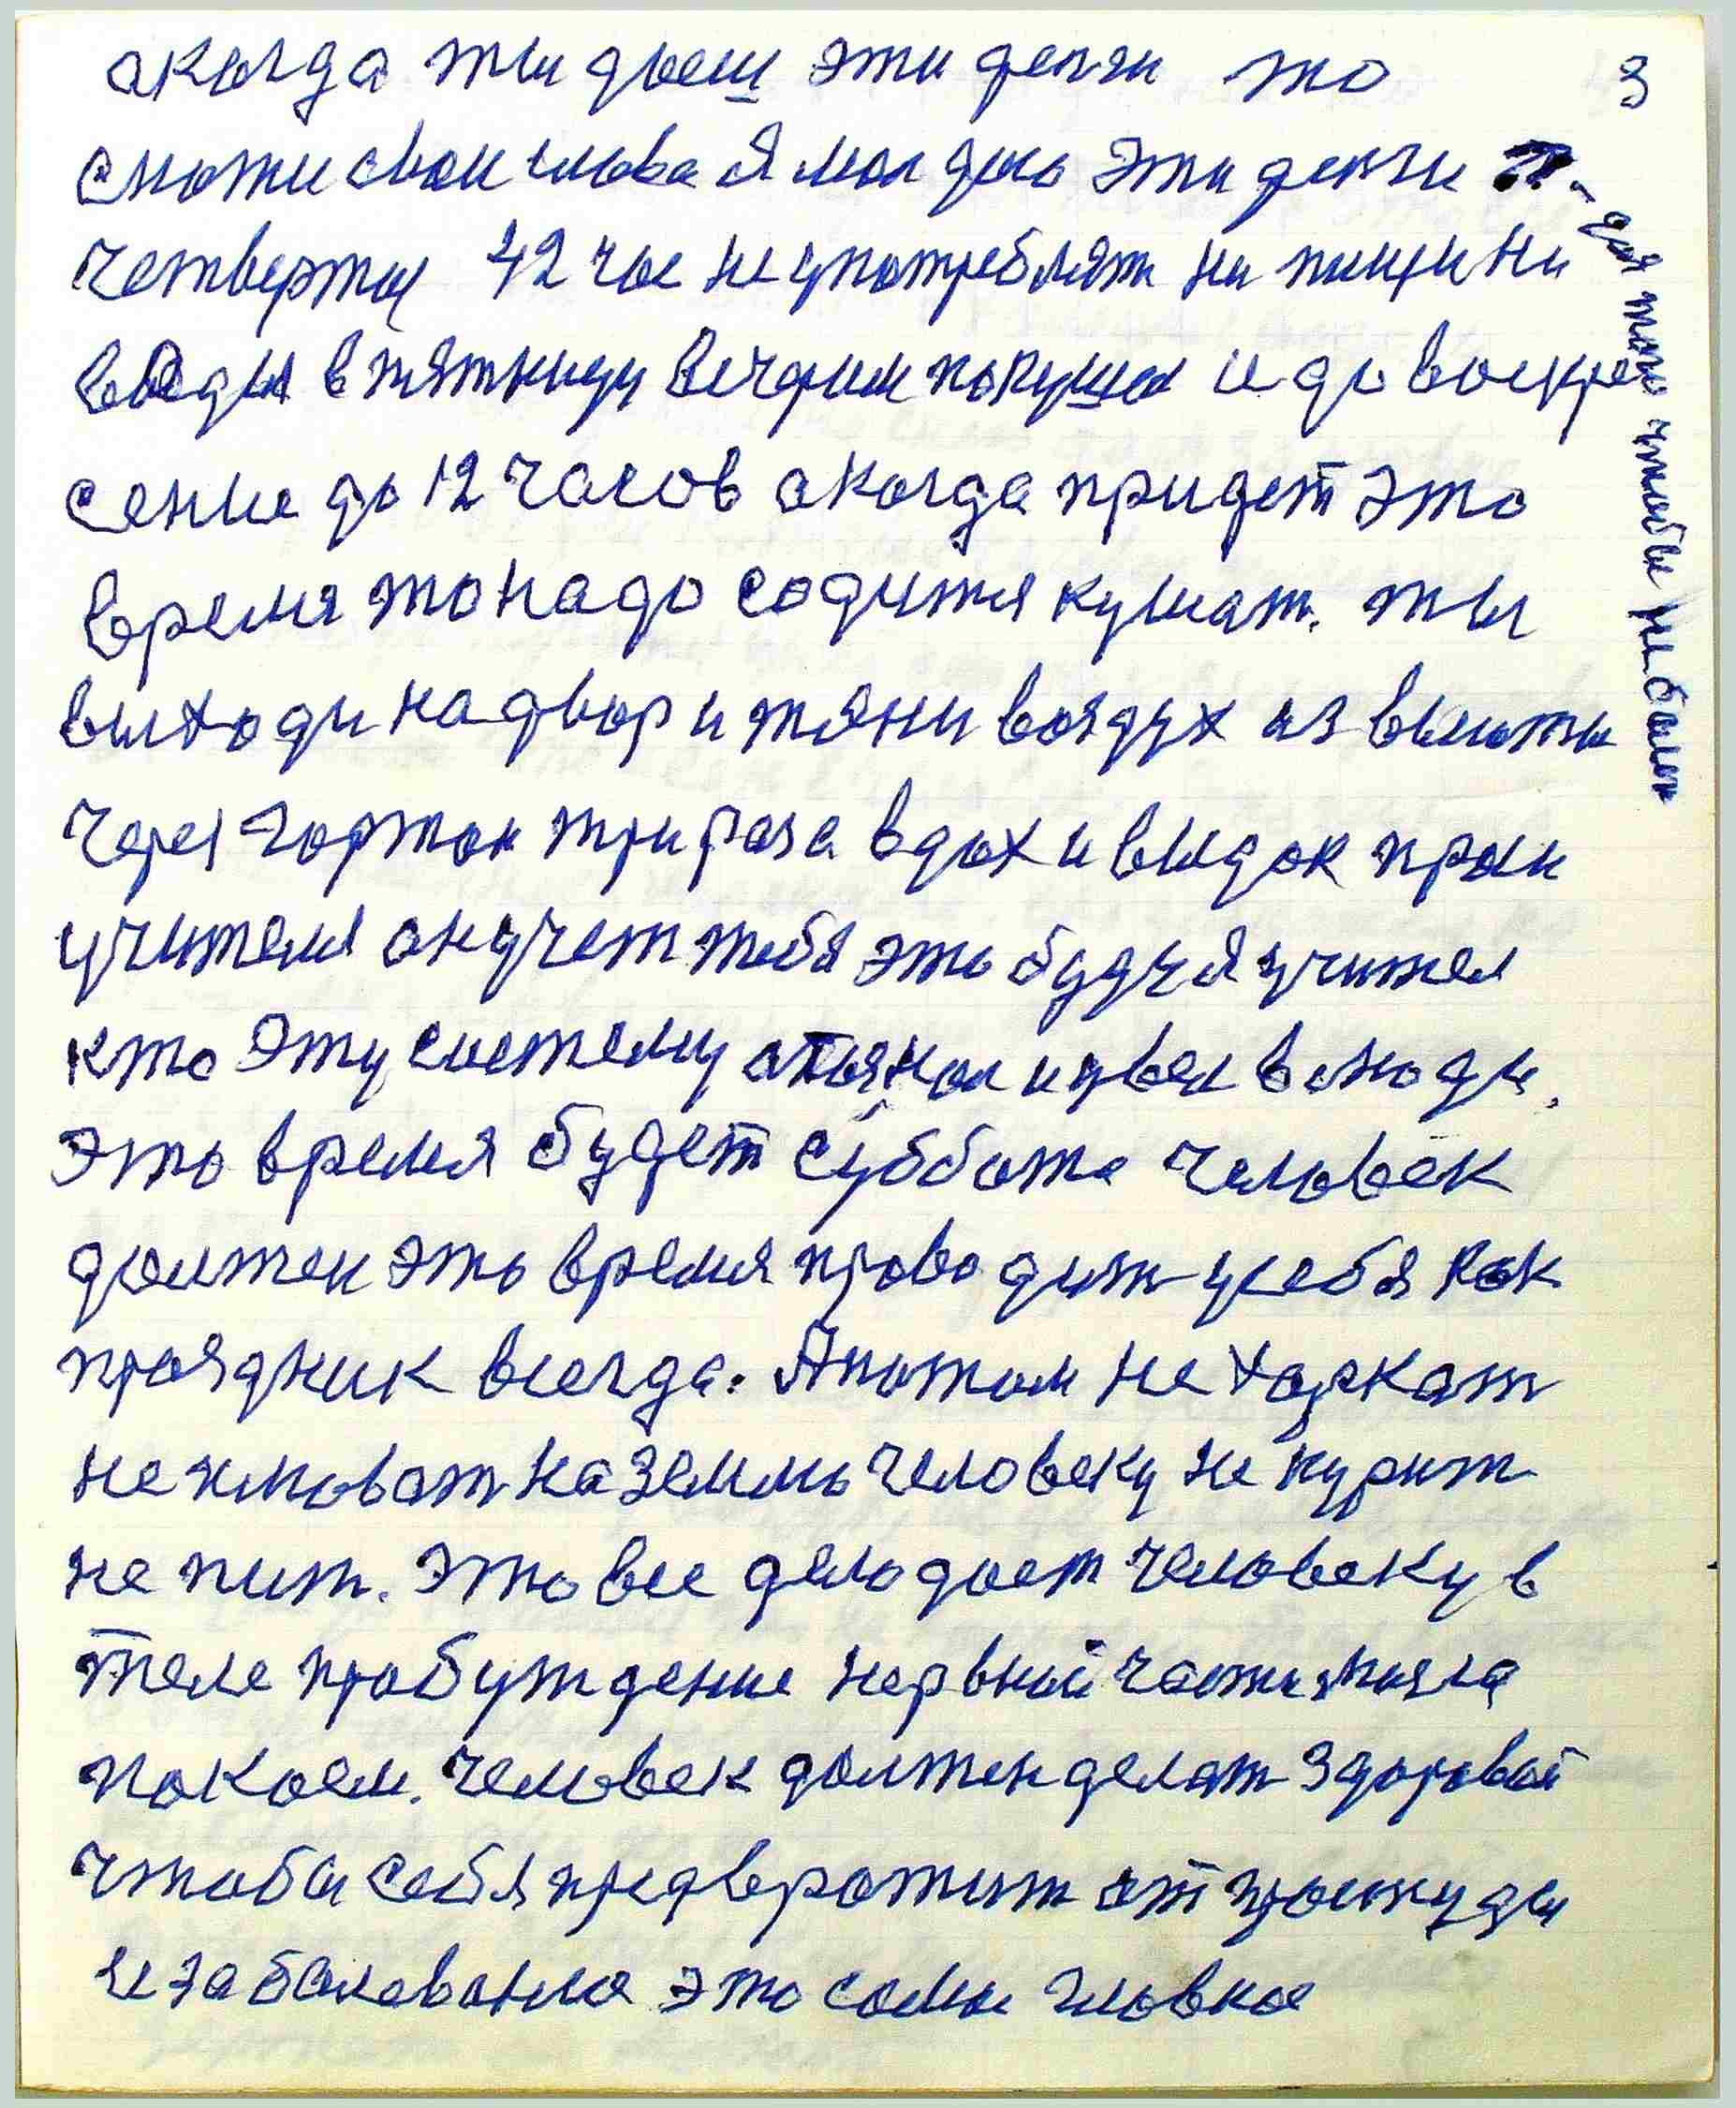 акогда ты даеш эти денги то
3
сможи свои слова Я мол даю эти денги
- для того чтобы не болеть
четвертое 42 час не употреблять ни пищи ни
воды в пятницу вечером покушал и до воскре
сение до 12 часов акогда придет это
время то надо садится кушат. ты
выходи на двор и тяни воздух из высоты
через гортон три раза вдох и выдох проси
учителя он учет тебя это буду я учител
кто эту систему ввел в люди.
Это время будет суббота человек
должен это время проводит у себя как
праздник всегда. А потом не харкат
не плюват на землю человеку не курит
не пит. Это все дело дает человеку в
теле пробуждение нервной части
покоем. человек должен делат здоровой
чтобы себя предвратит от простуды
и заболевания это самое главное